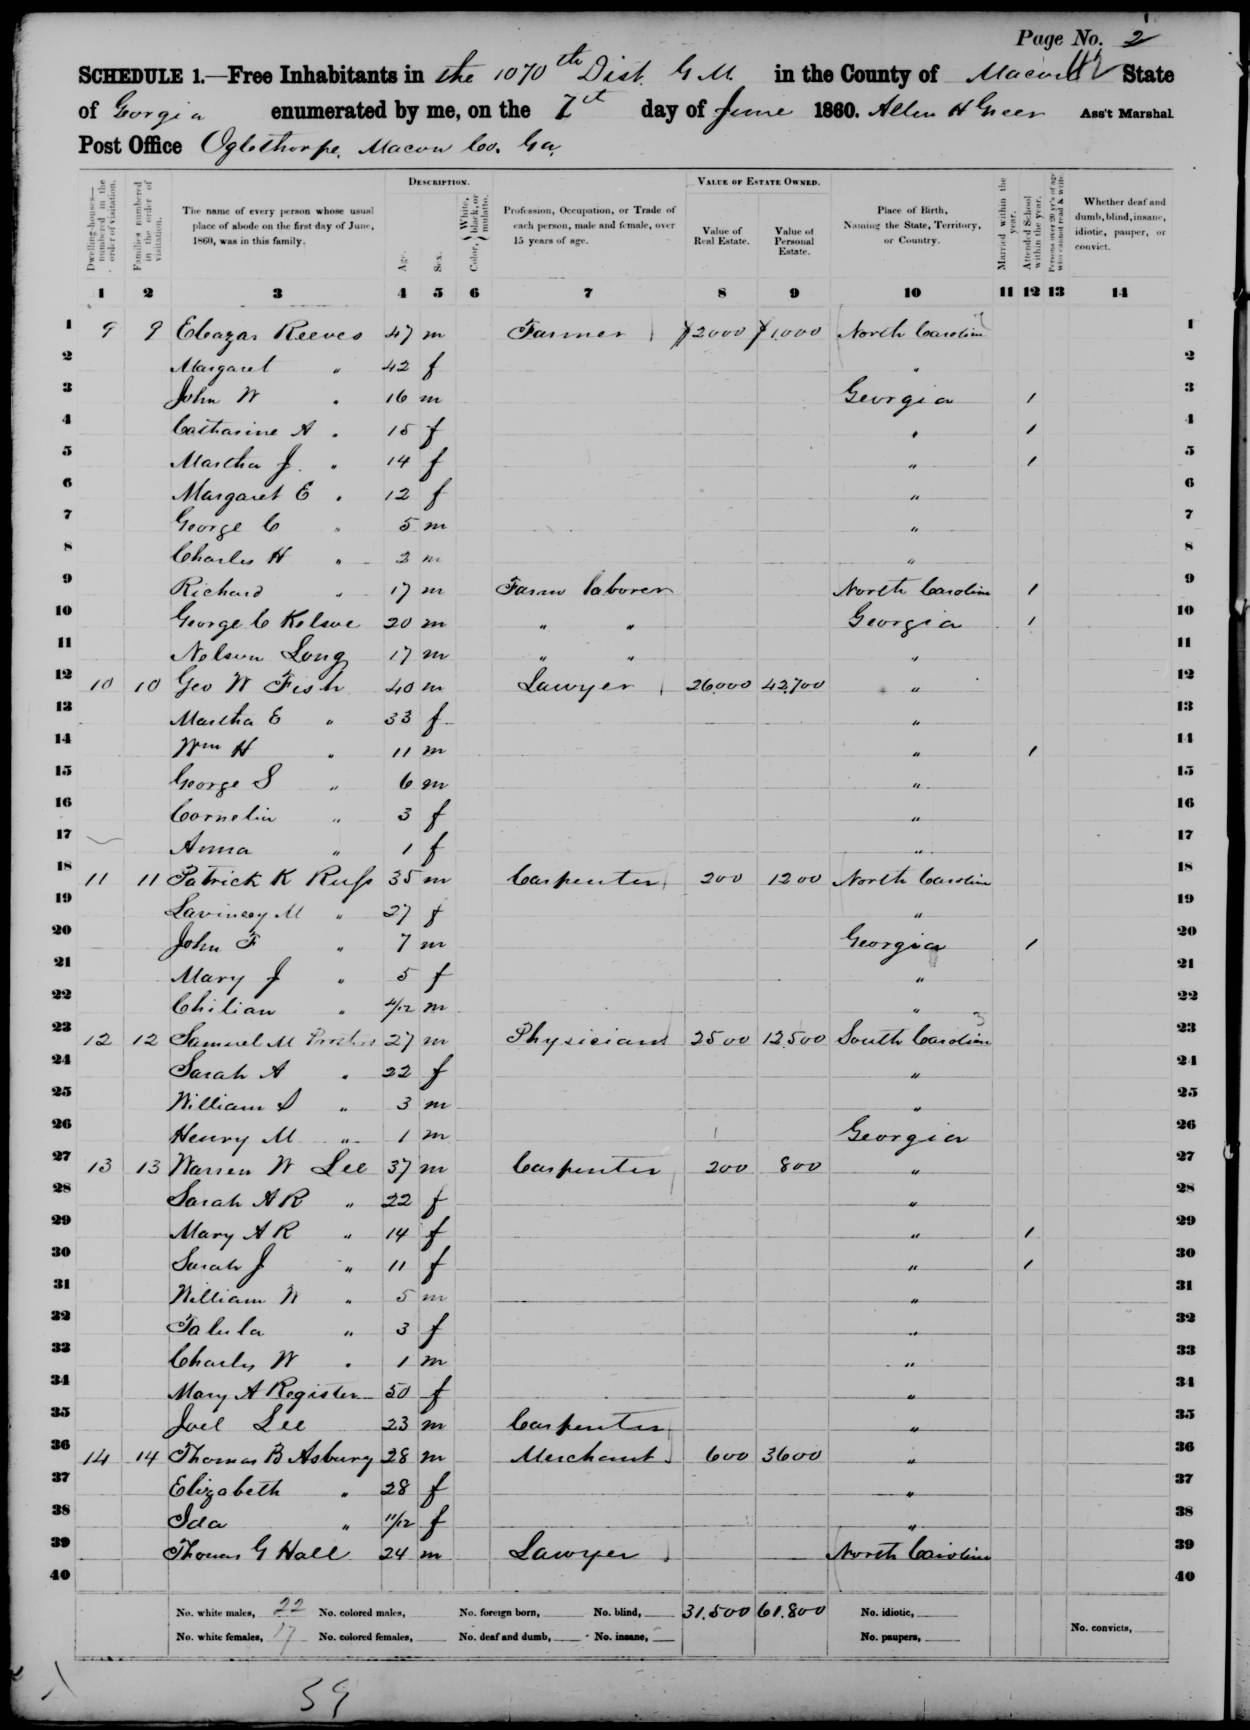 Page No. 2
SCHEDULE 1.—Free Inhabitants in the 1070th Dist. G M in the County of Macon State
of Gorgia enumerated by me, on the 7th day of June 1860. Allen H Greer Ass't Marshal.
Post Office Oglethorpe, Macon Co. Ga.
Dwelling-houses—numbered in the order of visitation.
Families numbered in the order of visitation.
The name of every person whose usual place of abode on the first day of June, 1860, was in this family.
DESCRIPTION.
Age.
Sex.
Color, { White, black, or mulatto.
Profession, Occupation, or Trade of each person, male and female, over 15 years of age.
VALUE OF ESTATE OWNED.
Value of Real Estate.
Value of Personal Estate.
Place of Birth, Naming the State, Territory, or Country.
Married within the year.
Attended School within the year.
Persons over 20 y'rs of age who cannot read & write.
Whether deaf and dumb, blind, insane, idiotic, pauper, or convict.
1 2 3 4 5 6 7 8 9 10 11 12 13 14
1 9 9 Eleazar Reeves 47 m Farmer $2000 $1000 North Carolina 1
2 Margaret " 42 f " 2
3 John W " 16 m Georgia 1 3
4 Catharine A " 15 f " 1 4
5 Martha J. " 14 f " 1 5
6 Margaret E " 12 f " 6
7 George C " 5 m " 7
8 Charles H " 2 m " 8
9 Richard " 17 m Farm laborer North Carolina 1 9
10 George C Kelsoe 20 m " " Georgia 1 10
11 Nelson Long 17 m " " " 11
12 10 10 Geo W Fish 40 m Lawyer 26000 42,700 " 12
13 Martha E " 33 f " 13
14 Wm H " 11 m " 1 14
15 George S " 6 m " 15
16 Cornelia " 3 f " 16
17 Anna " 1 f " 17
18 11 11 Patrick K Russ 35 m Carpenter 200 1200 North Carolina 18
19 M " 27 f " 19
20 John F " 7 m Georgia 1 20
21 Mary J " 5 f " 21
22 Chilian " 4/12 m " 22
23 12 12 Samuel M 27 m Physician 2500 12,500 South Carolina 23
24 Sarah A " 22 f " 24
25 William S " 3 m " 25
26 Henry M " 1 m Georgia 26
27 13 13 Warren W Lee 37 m Carpenter 200 800 " 27
28 Sarah A R " 22 f " 28
29 Mary A R " 14 f " 1 29
30 Sarah J " 11 f " 1 30
31 William W " 5 m " 31
32 Talula " 3 f " 32
33 Charles W " 1 m " 33
34 Mary A Register 50 f " 34
35 Joel Lee 23 m Carpenter " 35
36 14 14 Thomas B Asbury 28 m Merchant 600 3600 " 36
37 Elizabeth " 28 f " 37
38 Ida " 11/12 f " 38
39 Thomas G Hall 24 m Lawyer North Carolina 39
40 40
No. white males, 22 No. colored males, No. foreign born, No. blind, 31.500 61.800 No. idiotic,
No. white females, 17 No. colored females, No. deaf and dumb, No. insane, No. paupers, No. convicts,
39